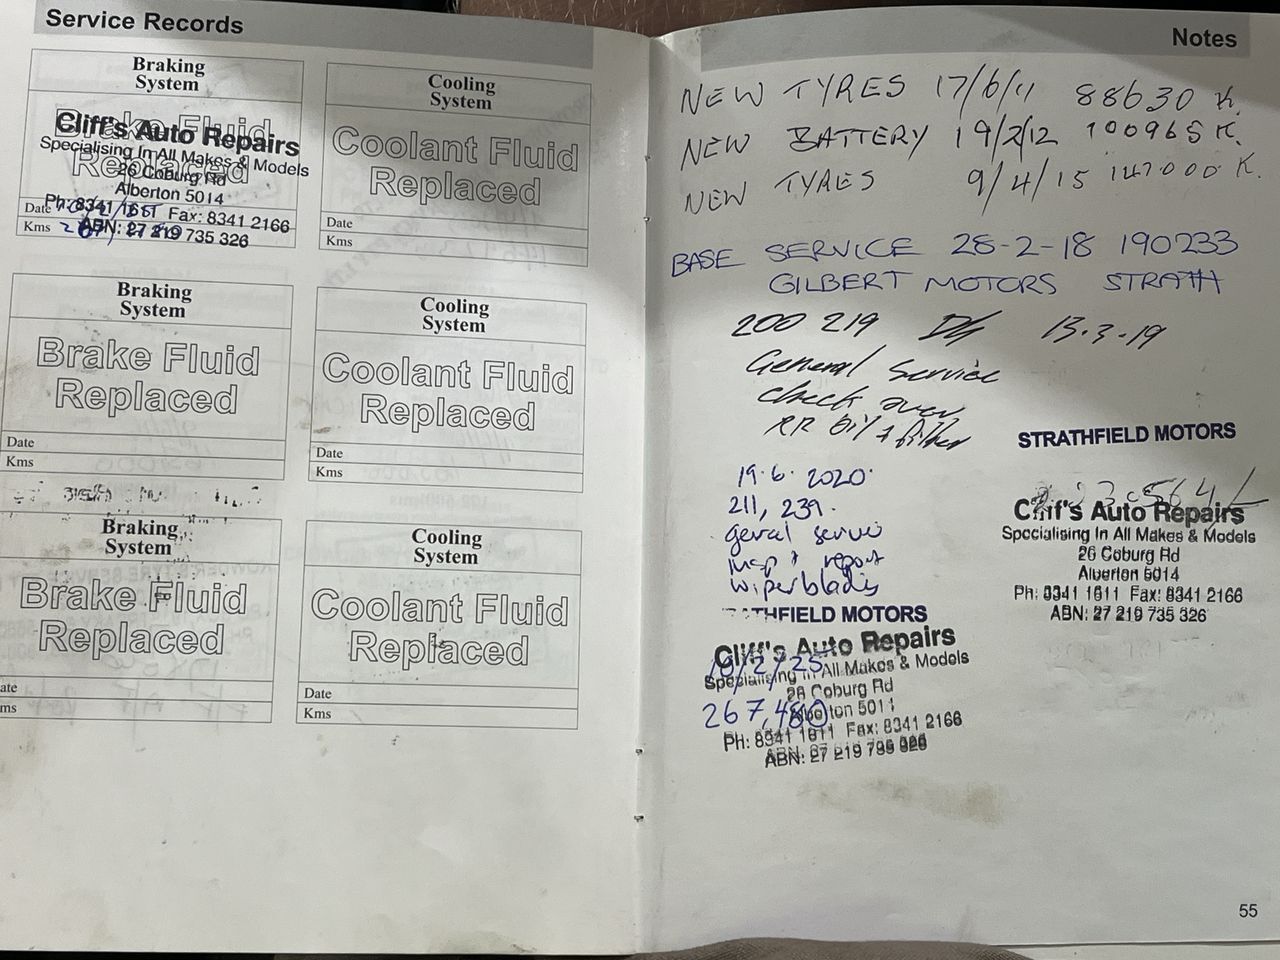 Service Records
Braking
System
Brake Fluid
Replaced
Cliff's Auto Repairs
Specialising In All Makes & Models
26 Coburg Rd
Alberton 5014
Ph: 8341 1611 Fax: 8341 2166
ABN: 27 219 735 326
Date
Kms
Cooling
System
Coolant Fluid
Replaced
Date
Kms
Braking
System
Brake Fluid
Replaced
Date
Kms
Cooling
System
Coolant Fluid
Replaced
Date
Kms
Braking
System
Brake Fluid
Replaced
ate
ms
Cooling
System
Coolant Fluid
Replaced
Date
Kms
Notes
NEW TYRES 17/6/11 88630 K.
NEW BATTERY 19/2/12 100965 K.
NEW TYRES 9/4/15 147000 K.
BASE SERVICE 28-2-18 190233
GILBERT MOTORS STRATH
200 219 13.3.19
General Service
check over
RR oil & filter
19.6.2020.
211, 239.
geral servi
insp & report
wiperblades
STRATHFIELD MOTORS
Cliff's Auto Repairs
Specialising In All Makes & Models
26 Coburg Rd
Alberton 5014
Ph: 8341 1611 Fax: 8341 2166
ABN: 27 219 735 326
THFIELD MOTORS
Cliff's Auto Repairs
10/2/25
Specialising In All Makes & Models
26 Coburg Rd
267,480
Alberton 5014
Ph: 8341 1611 Fax: 8341 2166
ABN: 27 219 735 326
55